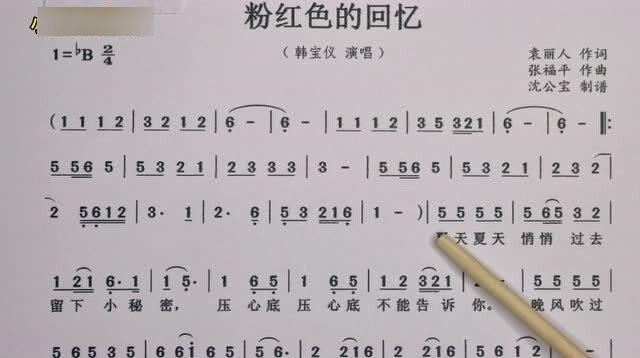 粉红色的回忆
1=♭B 2/4
（韩宝仪 演唱）
袁丽人 作词
张福平 作曲
沈公宝 制谱
(1 1 1 2 | 3 5 3 2 | 6 - | 6 - | 1 1 1 2 | 3 5 3 2 1 | 6 - | 6 - ‖:
5 5 6 5 | 5 3 2 1 | 2 3 3 3 | 3 - | 5 5 6 5 | 5 3 2 1 | 2 3 2
2 5 6 1 2 | 3· 1 | 2· 6 | 5 3 2 1 6 | 1 - ) | 5 5 5 5 | 5 6 5 3 2
天夏天 悄悄 过去
1 2 1 6· 1 | 1 5· | 1 6 5 | 1 6 5 | 1 2 3 2 1 | 1 - | 5 5 5 5
留下 小秘密， 压心底 压心底 不能告诉 你。 晚风吹过